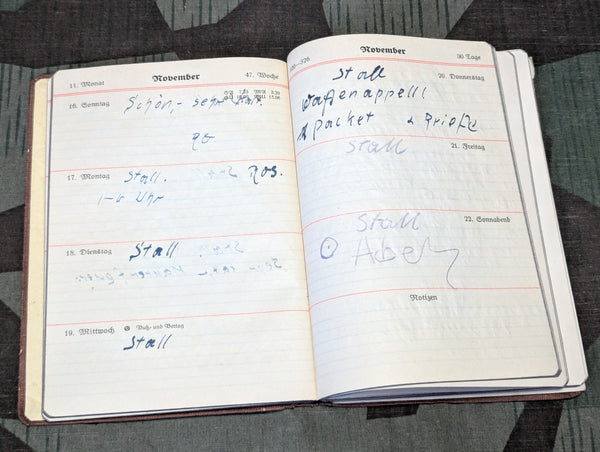 11. Monat November 47. Woche
16. Sonntag Schön, sehr kalt.
17. Montag Stall. Ros.
1-6 Uhr
18. Dienstag Stall.
19. Mittwoch Buß- und Bettag
Stall
November 30 Tage
20. Donnerstag
Stall
Waffenappell
Packet Briefe
21. Freitag
Stall
22. Sonnabend
Stall
Notizen